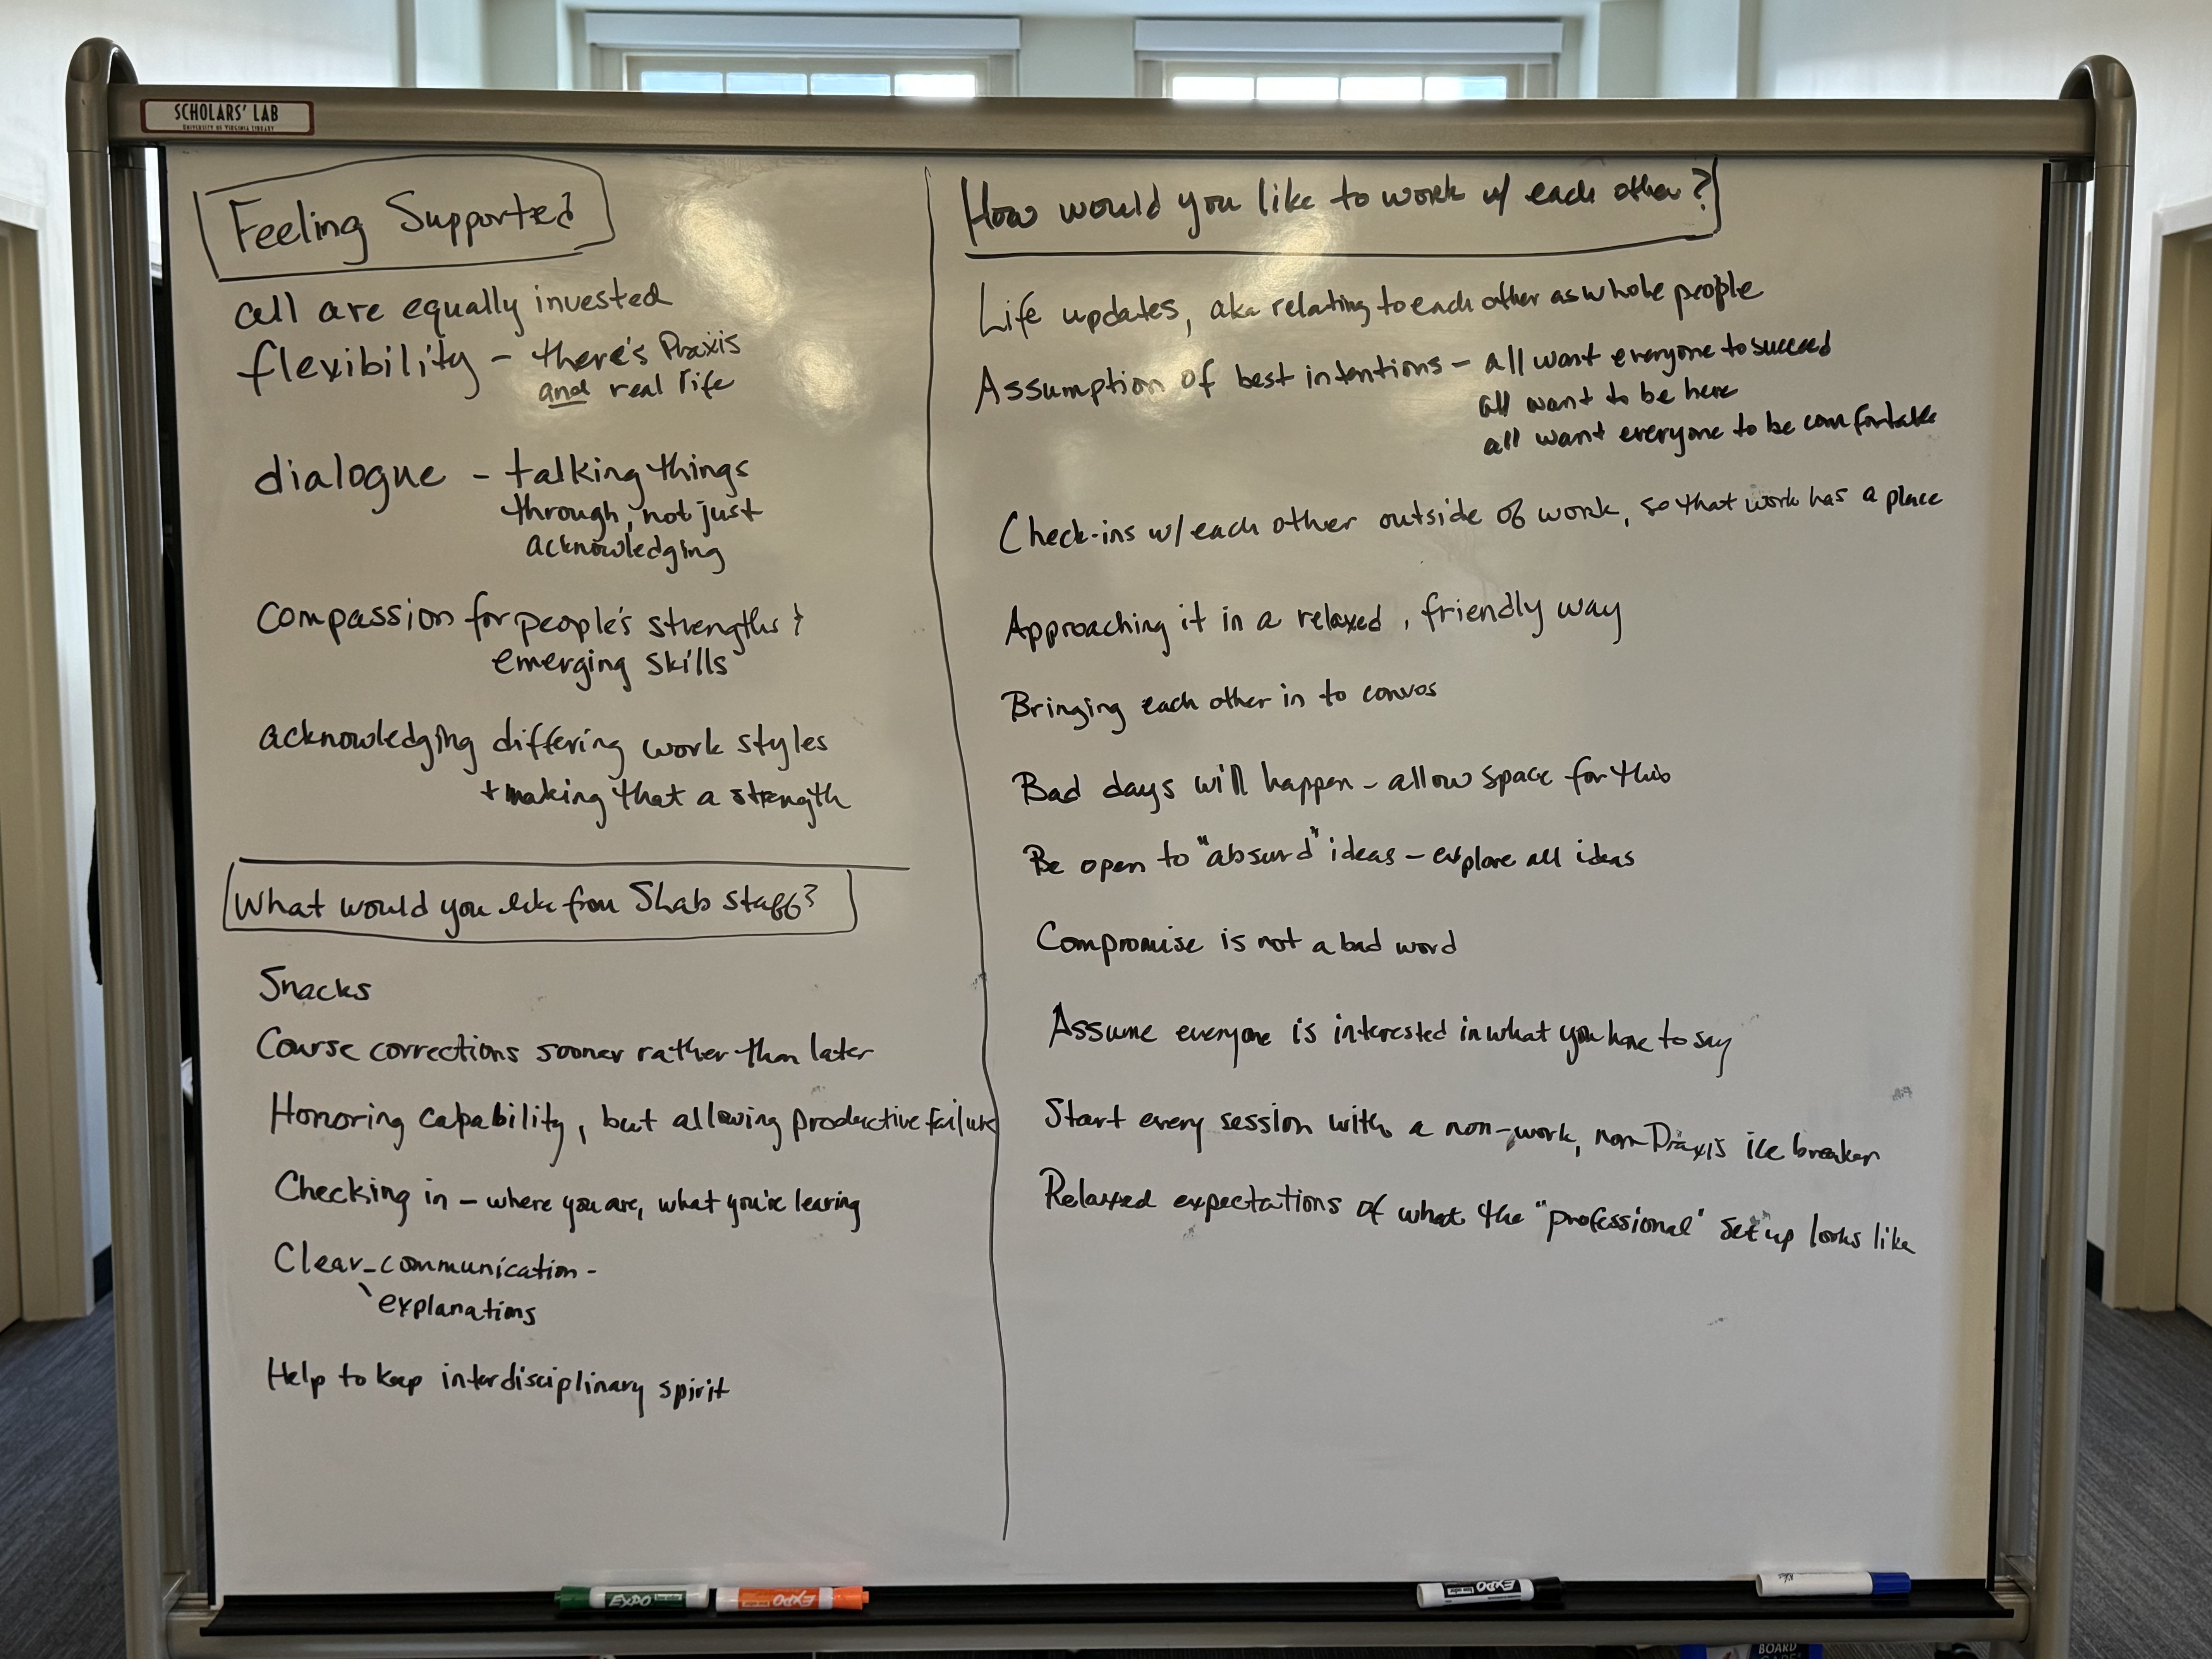 SCHOLARS' LAB
UNIVERSITY OF VIRGINIA LIBRARY
Feeling Supported
all are equally invested
flexibility – there's Praxis
and real life
dialogue – talking things
through, not just
acknowledging
Compassion for people's strengths &
emerging skills
acknowledging differing work styles
+ making that a strength
What would you like from Slab staff?
Snacks
Course corrections sooner rather than later
Honoring capability, but allowing productive failure
Checking in – where you are, what you're learing
Clear communication -
explanations
Help to keep interdisciplinary spirit
How would you like to work w/ each other?
Life updates, aka relating to each other as whole people
Assumption of best intentions – all want everyone to succeed
all want to be here
all want everyone to be comfortable
Check-ins w/ each other outside of work, so that work has a place
Approaching it in a relaxed, friendly way
Bringing each other in to convos
Bad days will happen – allow space for this
Be open to "absurd" ideas – explore all ideas
Compromise is not a bad word
Assume everyone is interested in what you have to say
Start every session with a non-work, non-Praxis ice breaker
Relaxed expectations of what the "professional" set up looks like
EXPO
EXPO
EXPO
BOARD